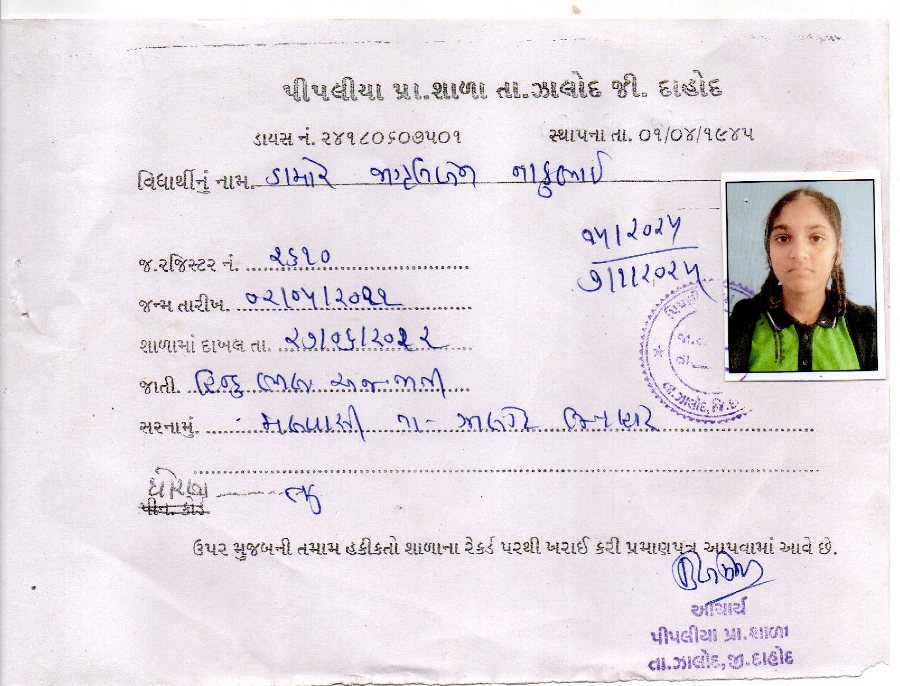 પીપલીયા પ્રા.શાળા તા.ઝાલોદ જી. દાહોદ
ડાયસ નં. ૨૪૧૮૦૬૦૭૫૦૧ સ્થાપના તા. ૦૧/૦૪/૧૯૪૫
વિદ્યાર્થીનું નામ. ડામોર જાગૃતિબેન
૧૫/૨૦૨૫
૭/૧/૨૦૨૫
જ.રજિસ્ટર નં. ૨૬૧૦
જન્મ તારીખ. ૦૨/૦૫/૨૦૧૧
શાળામાં દાખલ તા. ૨૭/૦૬/૨૦૨૨
જાતી હિન્દુ ભીલ અનુ.જાતી
સરનામું. તા-ઝાલોદ
ધોરણ
પીન. કોડ
ઉપર મુજબની તમામ હકીકતો શાળાના રેકર્ડ પરથી ખરાઈ કરી પ્રમાણપત્ર આપવામાં આવે છે.
આચાર્ય
પીપલીયા પ્રા.શાળા
તા.ઝાલોદ,જી.દાહોદ